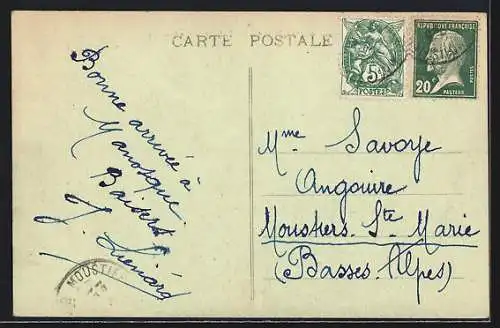 CARTE POSTALE
RÉPUBLIQUE FRANÇAISE
5c
POSTES
20c
PASTEUR
POSTES
Bonne arrivée à
Manosque.
Baisers
J. Liénard
Mme Savoye
Angouire
Moustiers. Ste Marie
(Basses. Alpes)
MOUSTIE